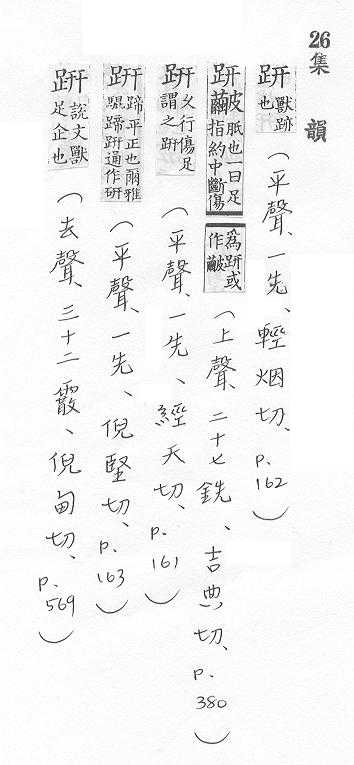 26集韻
趼獸跡也(平聲、一先、輕烟切、p.162)
趼䩌胝也一曰足指約中斷傷為趼或作䩌(上聲、二十七銑、吉典切、p.380)
趼久行傷足謂之趼(平聲、一先、經天切、p.161)
趼蹄平正也爾雅騉蹄趼通作研(平聲、一先、倪堅切、p.163)
趼說文獸足企也(去聲、三十二霰、倪甸切、p.569)